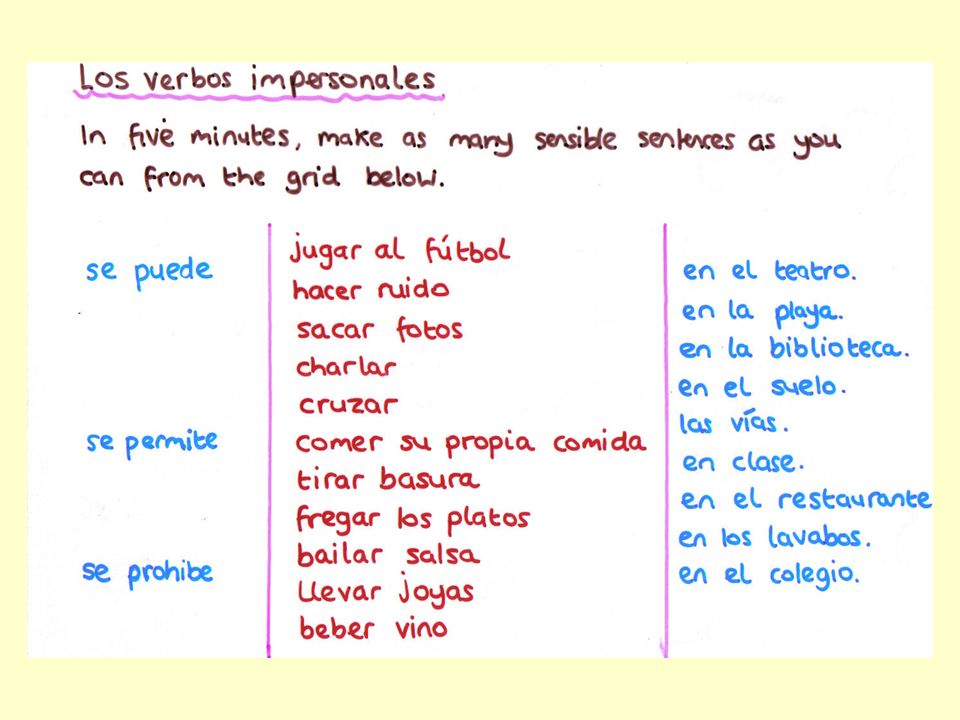 Los verbos impersonales
In five minutes, make as many sensible sentences as you
can from the grid below.
se puede
se permite
se prohibe
jugar al fútbol
hacer ruido
sacar fotos
charlar
cruzar
comer su propia comida
tirar basura
fregar los platos
bailar salsa
llevar joyas
beber vino
en el teatro.
en la playa.
en la biblioteca.
en el suelo.
las vías.
en clase.
en el restaurante
en los lavabos.
en el colegio.